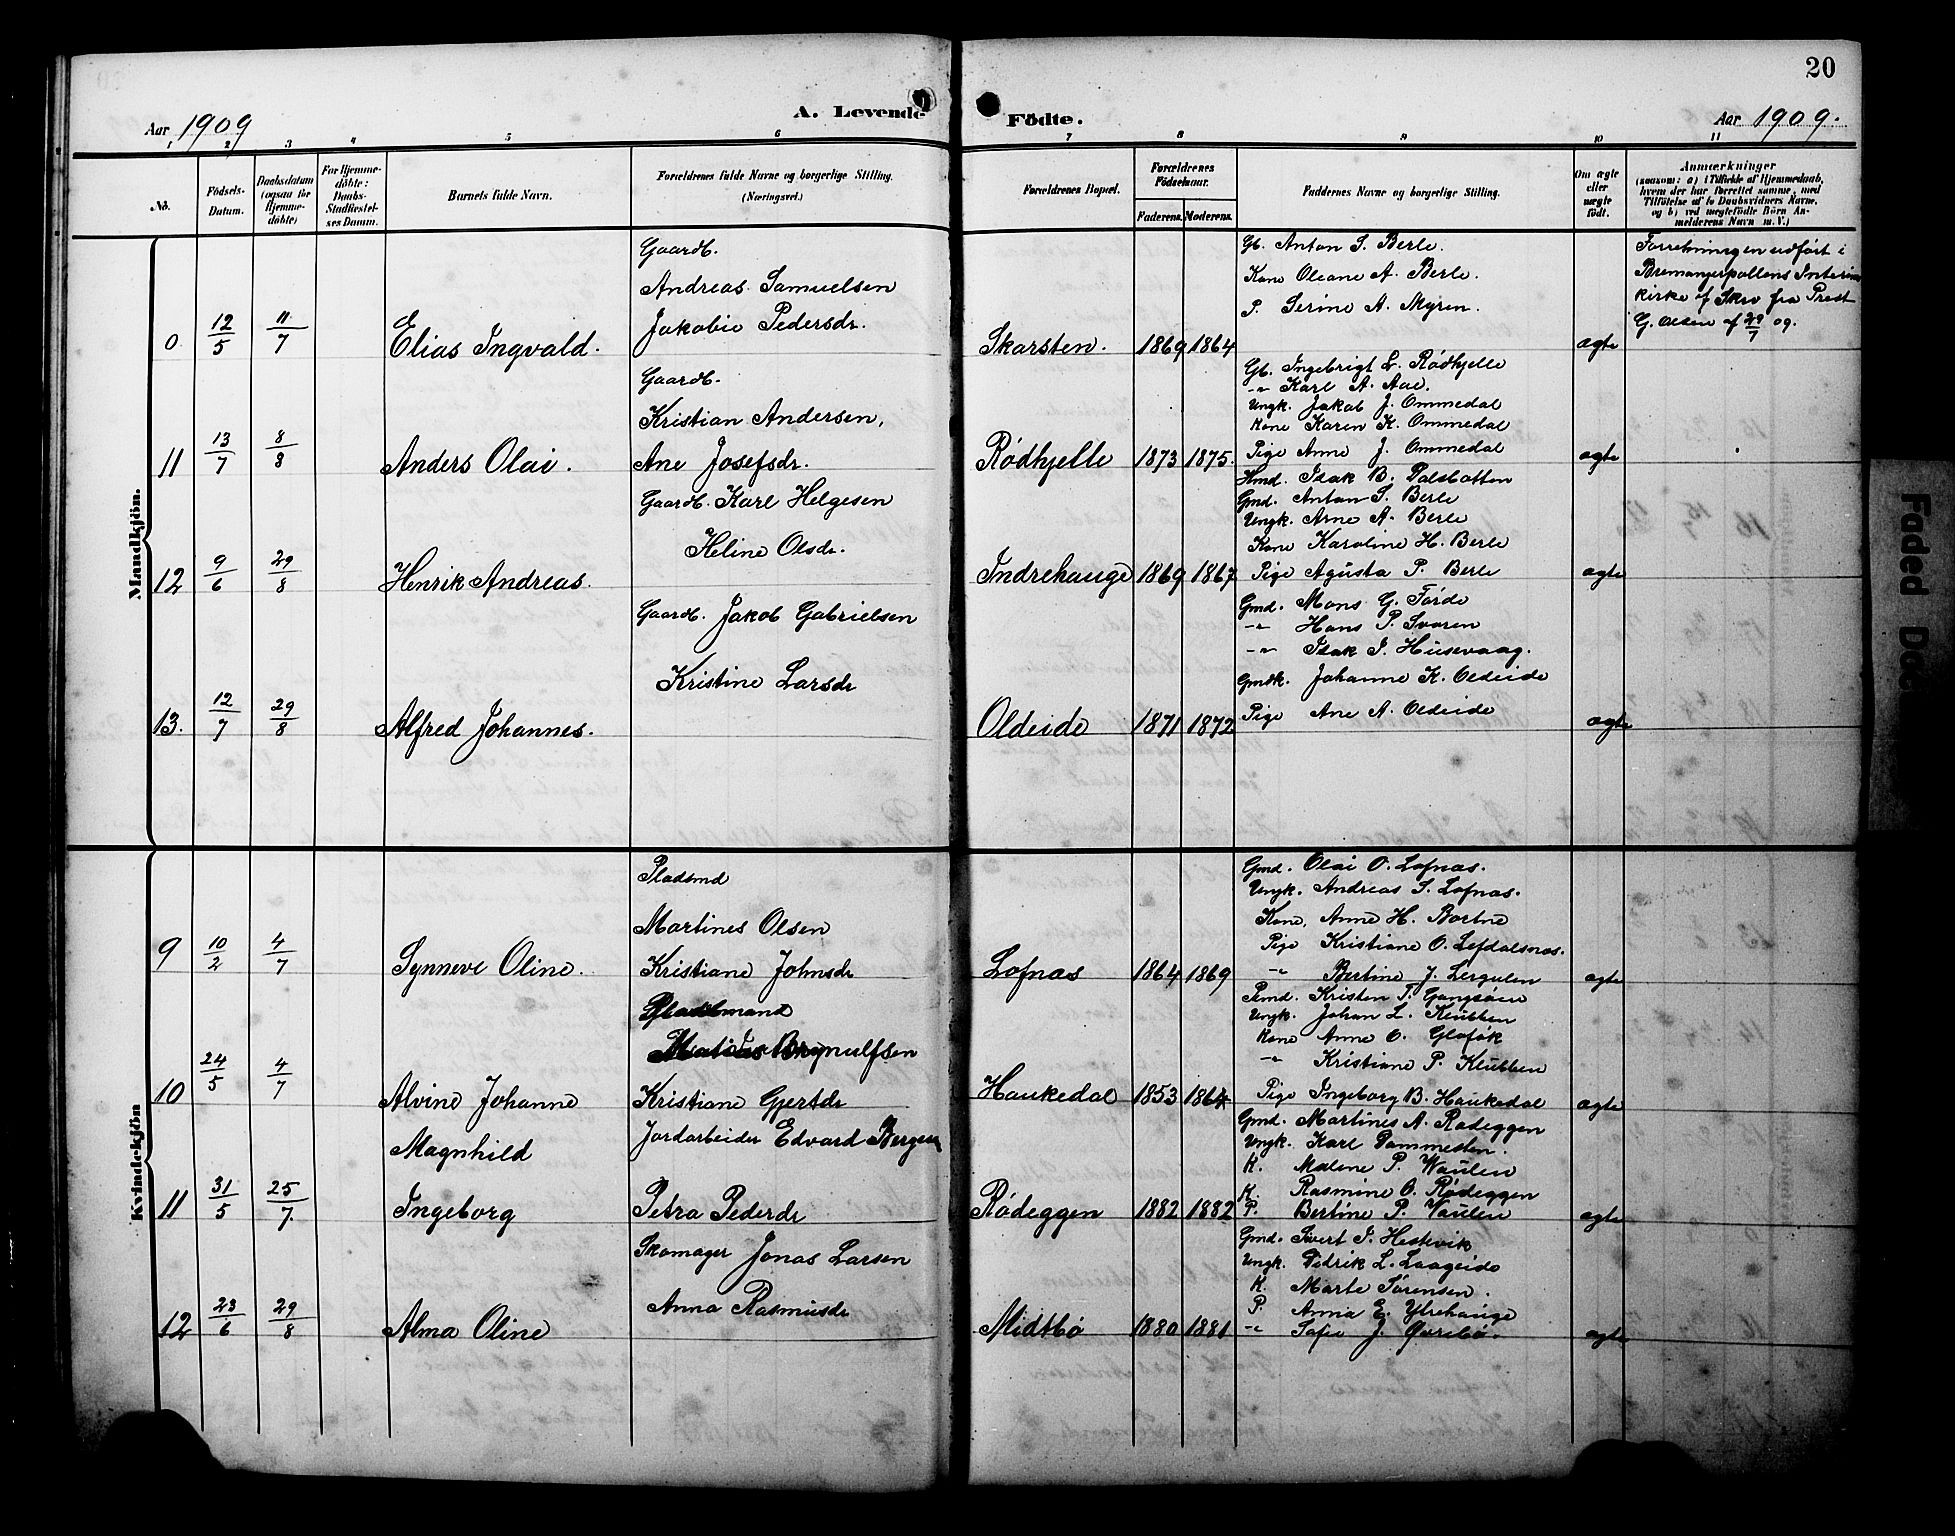 20
Aar 1909
A. Levende Födte.
Aar 1909.
1 2 3 4 5 6 7 8 9 10 11
No.
Födsels-Datum.
Daabsdatum (ogsaa for Hjemme-döbte)
For Hjemme-döbte: Daabs-Stadfæstel-ses Datum.
Barnets fulde Navn.
Forældrenes fulde Navne og borgerlige Stilling. (Næringsvei.)
Forældrenes Bopæl.
Forældrenes Födselsaar.
Faderens. Moderens.
Faddernes Navne og borgerlige Stilling.
Om ægte eller uægte födt.
Anmærkninger
(saasom: a) i Tilfælde af Hjemmedaab, hvem der har forrettet samme, med Tilföielse af to Daabsvidners Navne, og b) ved uægtefödte Börn An-melderens Navn m. V.)
Mandkjön.
0 12/5 11/7 Elias Ingvald.
Gaardb.
Andreas Samuelsen
Jakobie Pedersdr.
Skarsten. 1869 1864
Gb. Anton S. Berle.
Kone Oleane A. Berle.
P. Serine A. Myren.
ægte
Forretningen udført i
Bremangerpollens Interims
kirke ef Skr. fra Prest
G. Olsen af 29/7 09.
11 13/7 8/8 Anders Olai.
Gaardb.
Kristian Andersen,
Ane Josefsdr.
Rødhjelle 1873 1875.
Gb. Ingebrigt L. Rødhjelle
-"- Karl A. Aae.
Ungk. Jakob J. Ommedal
Kone Karen K. Ommedal
Pige Anne J. Ommedal
ægte
12 9/6 29/8 Henrik Andreas.
Gaardb. Karl Helgesen
Heline Olsdr.
Indrehauge 1869 1867
Hmd. Isak B. Dalsbotten
Gmd. Anton S. Berle
Ungk. Arne A. Berle
Kone Karoline H. Berle
Pige Agusta P. Berle
ægte
13. 12/7 29/8 Alfred Johannes.
Gaardb. Jakob Gabrielsen
Kristine Larsdr
Oldeide 1871 1872
Gmd. Mons G. Førde
-"- Hans P. Svoren
-"- Isak I. Husevaag.
Gmdk. Johanne K. Oldeide
Pige Ane A. Oldeide
ægte
Kvindekjön
9 10/2 4/7 Synneve Oline.
Pladsmd
Martines Olsen
Kristiane Johnsdr
Lofnæs 1864 1869
Gmd. Olai O. Lofnæs.
Ungk. Andreas S. Lofnæs.
Kone, Anne H. Bortne
Pige Kristiane O. Lefdalsnæs.
-"- Bertine J. Lergulen
ægte
10 24/5 4/7 Alvine Johanne
Pladsmand
Matias Brynulfsen
Kristiane Gjertdr
Haukedal 1853 1864
Pmd. Kristen T. Gangsøen
Ungk. Johan L. Klubben
Kone Anne O. Gloføk
-"- Kristiane P. Klubben
Pige Ingeborg B. Haukedal
ægte
11 31/5 25/7. Magnhild
Ingeborg
Jordarbeider Edvard Bergen
Petra Pederdr
Rødeggen 1882 1882
Gmd. Martines A. Rødeggen
Ungk. Karl Dammesten.
K. Malene P. Vaulen
K. Rasmine O. Rødeggen
P. Bertine P. Vaulen
ægte
12 23/6 29/8 Alma Oline
Skomager Jonas Larsen
Anna Rasmusdr
Midtbø 1880 1881
Gmd. Sivert I. Hestevik
Ungk. Didrik L. Laageide
K. Marte Sørensen.
P. Anna E. Ytrehauge
-"- Sofie J.
ægte
Faded Do